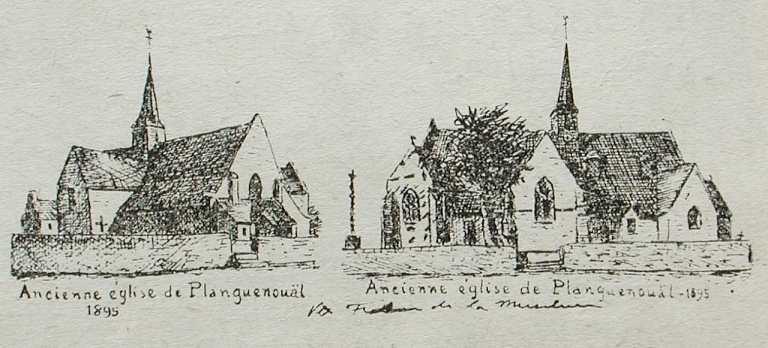 Ancienne église de Planguenouäl
1895
Ancienne église de Planguenouäl - 1895
de la